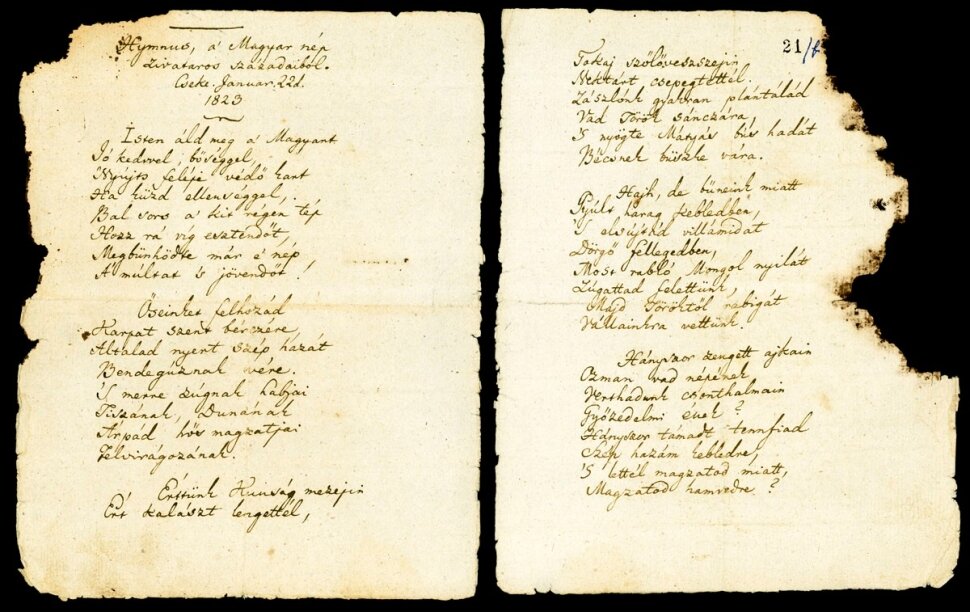 Hymnus, a' Magyar nép
zivataros századaiból.
Cseke. Januar. 22d.
1823
Isten áld meg a' Magyart
Jó kedvvel, bőséggel,
Nyujts feléje védő kart
Ha küzd ellenséggel,
Bal sors a' kit régen tép
Hozz rá víg esztendőt,
Megbünhödte már e' nép
A' múltat 's jövendőt!
Őseinket felhozád
Kárpát szent bérczére,
Általad nyert szép hazát
Bendegúznak vére.
'S merre zúgnak habjai
Tiszának, Dunának
Árpád hős magzatjai
Felvirágozának.
Értünk Kunság mezejin
Ért kalászt lengettél,
21/b
Tokaj szőlővesszejin
Nektárt csepegtettél.
Zászlónk gyakran plántálád
Vad Török sánczára,
'S nyögte Mátyás bús hadát
Bécsnek büszke vára.
Hajh, de bűneink miatt
Gyúlt harag kebledben,
'S elsújtád villámidat
Dörgő fellegedben,
Most rabló Mongol nyilát
Zúgattad felettünk,
Majd Töröktől rabigát
Vállainkra vettünk.
Hányszor zengett ajkain
Ozman vad népének
Vert hadunk csonthalmain
Győzedelmi ének?
Hányszor támadt tennfiad
Szép hazám kebledre,
'S lettél magzatod miatt,
Magzatod hamvedre?